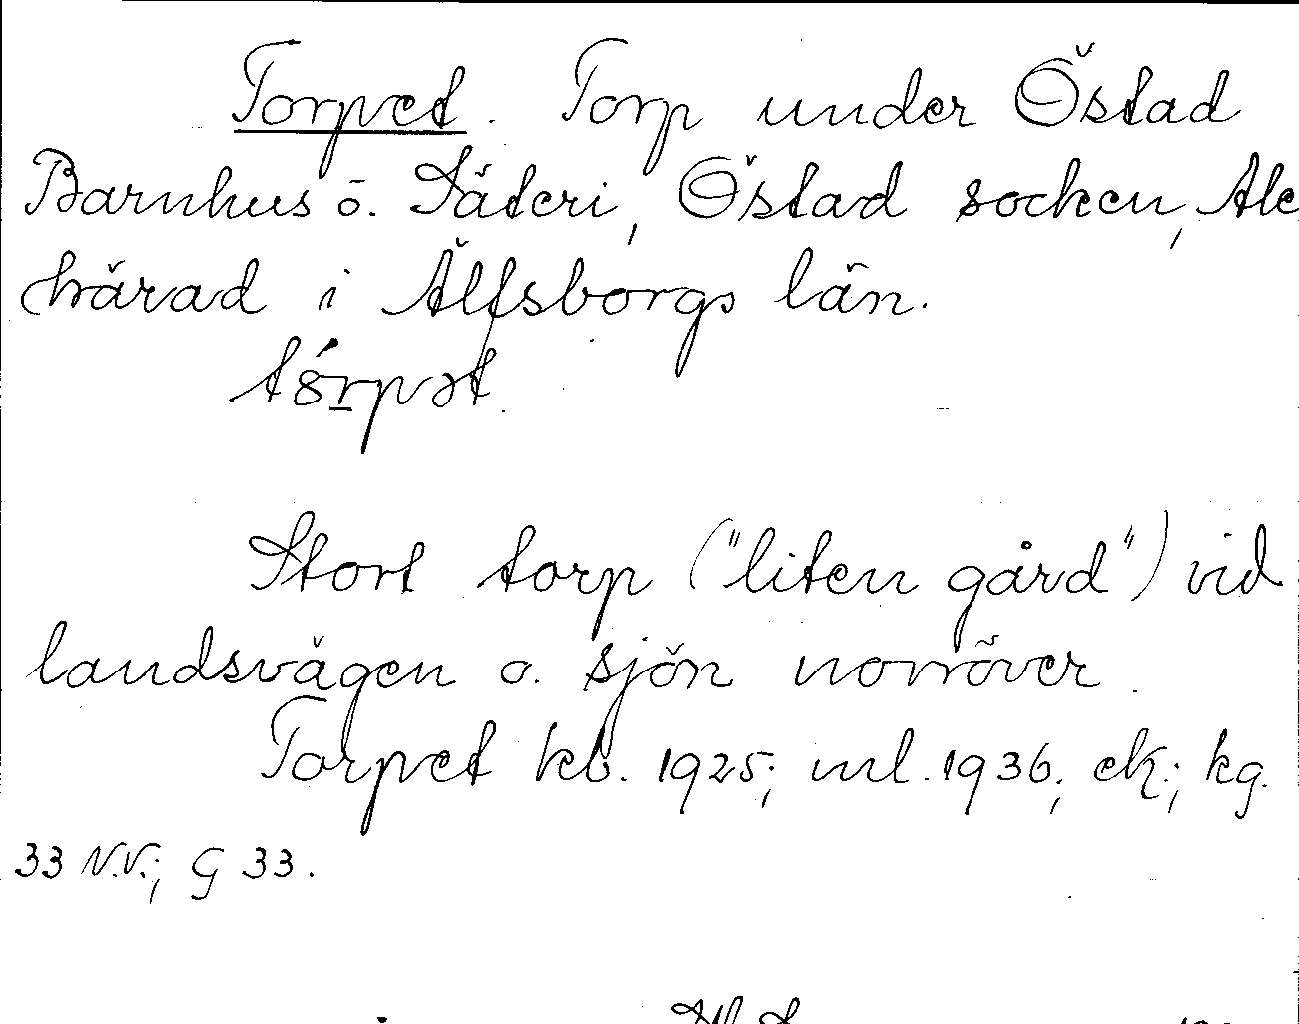 Torpet. Torp under Östad
Barnhus o. Säteri, Östad socken, Ale
härad i Älfsborgs län.
tȣ́rpət
Stort torp ("liten gård") vid
landsvägen o. sjön norröver.
Torpet kb. 1925; ml. 1936; ek.; kg.
33 N.V.; G 33.